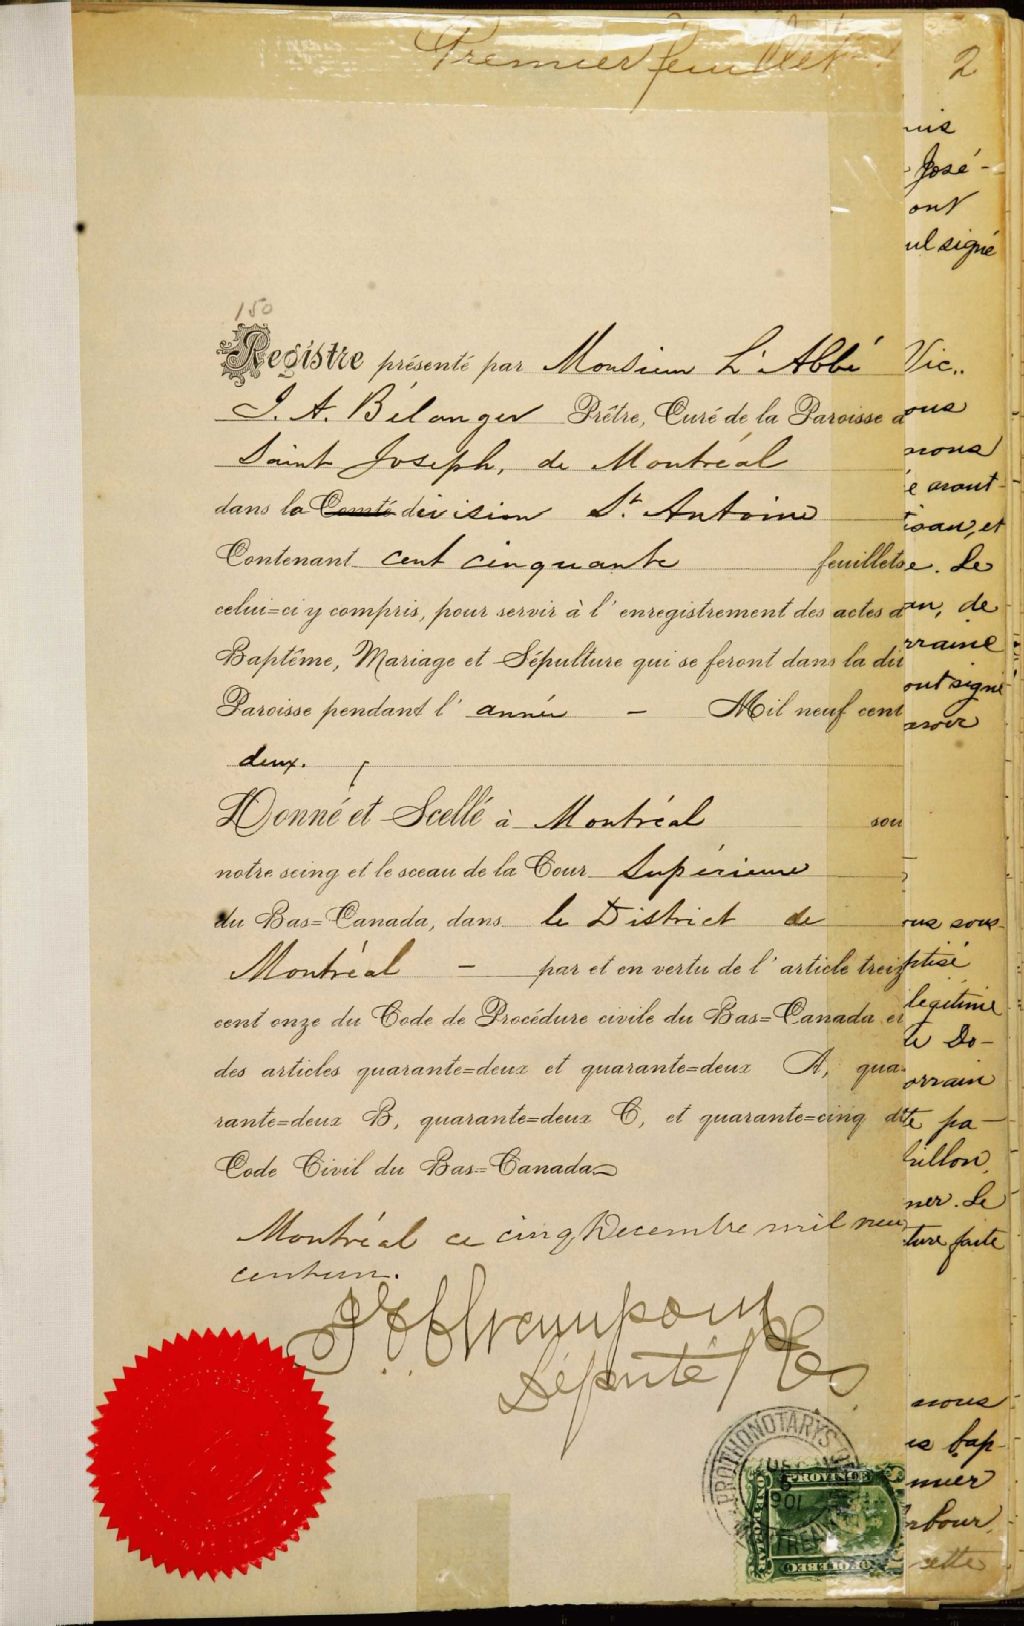 Premier feuillet
2
150
Registre présenté par Monsieur L'Abbé
J. A. Bélanger Prêtre, Curé de la Paroisse d
Saint Joseph, de Montréal
dans la Comté division St. Antoine
Contenant cent cinquante feuillets
celui=ci y compris, pour servir à l'enregistrement des actes d
Baptême, Mariage et Sépulture qui se feront dans la dit
Paroisse pendant l'année – Mil neuf cent
deux.
Donné et Scellé à Montréal sou
notre seing et le sceau de la Cour Supérieure
du Bas=Canada, dans le District de
Montréal – par et en vertu de l'article treiz
cent onze du Code de Procédure civile du Bas=Canada et
des articles quarante=deux et quarante=deux A, qua-
rante=deux B, quarante=deux C, et quarante=cinq du
Code Civil du Bas=Canada
Montréal ce cinq Decembre mil neu
cent un.
Député
PROTHONOTARYS OF
1901
MONTREAL
PROVINCE
QUEBEC
José-
ont
ul signé
Vic..
ous
nous
avant-
et
e. Le
an, de
rraine
ont signé
ous sous-
ptisé
légitime
Do-
orrain
te pa-
hillon,
ner. Le
ture faite
nous
bap-
rbour,
cette